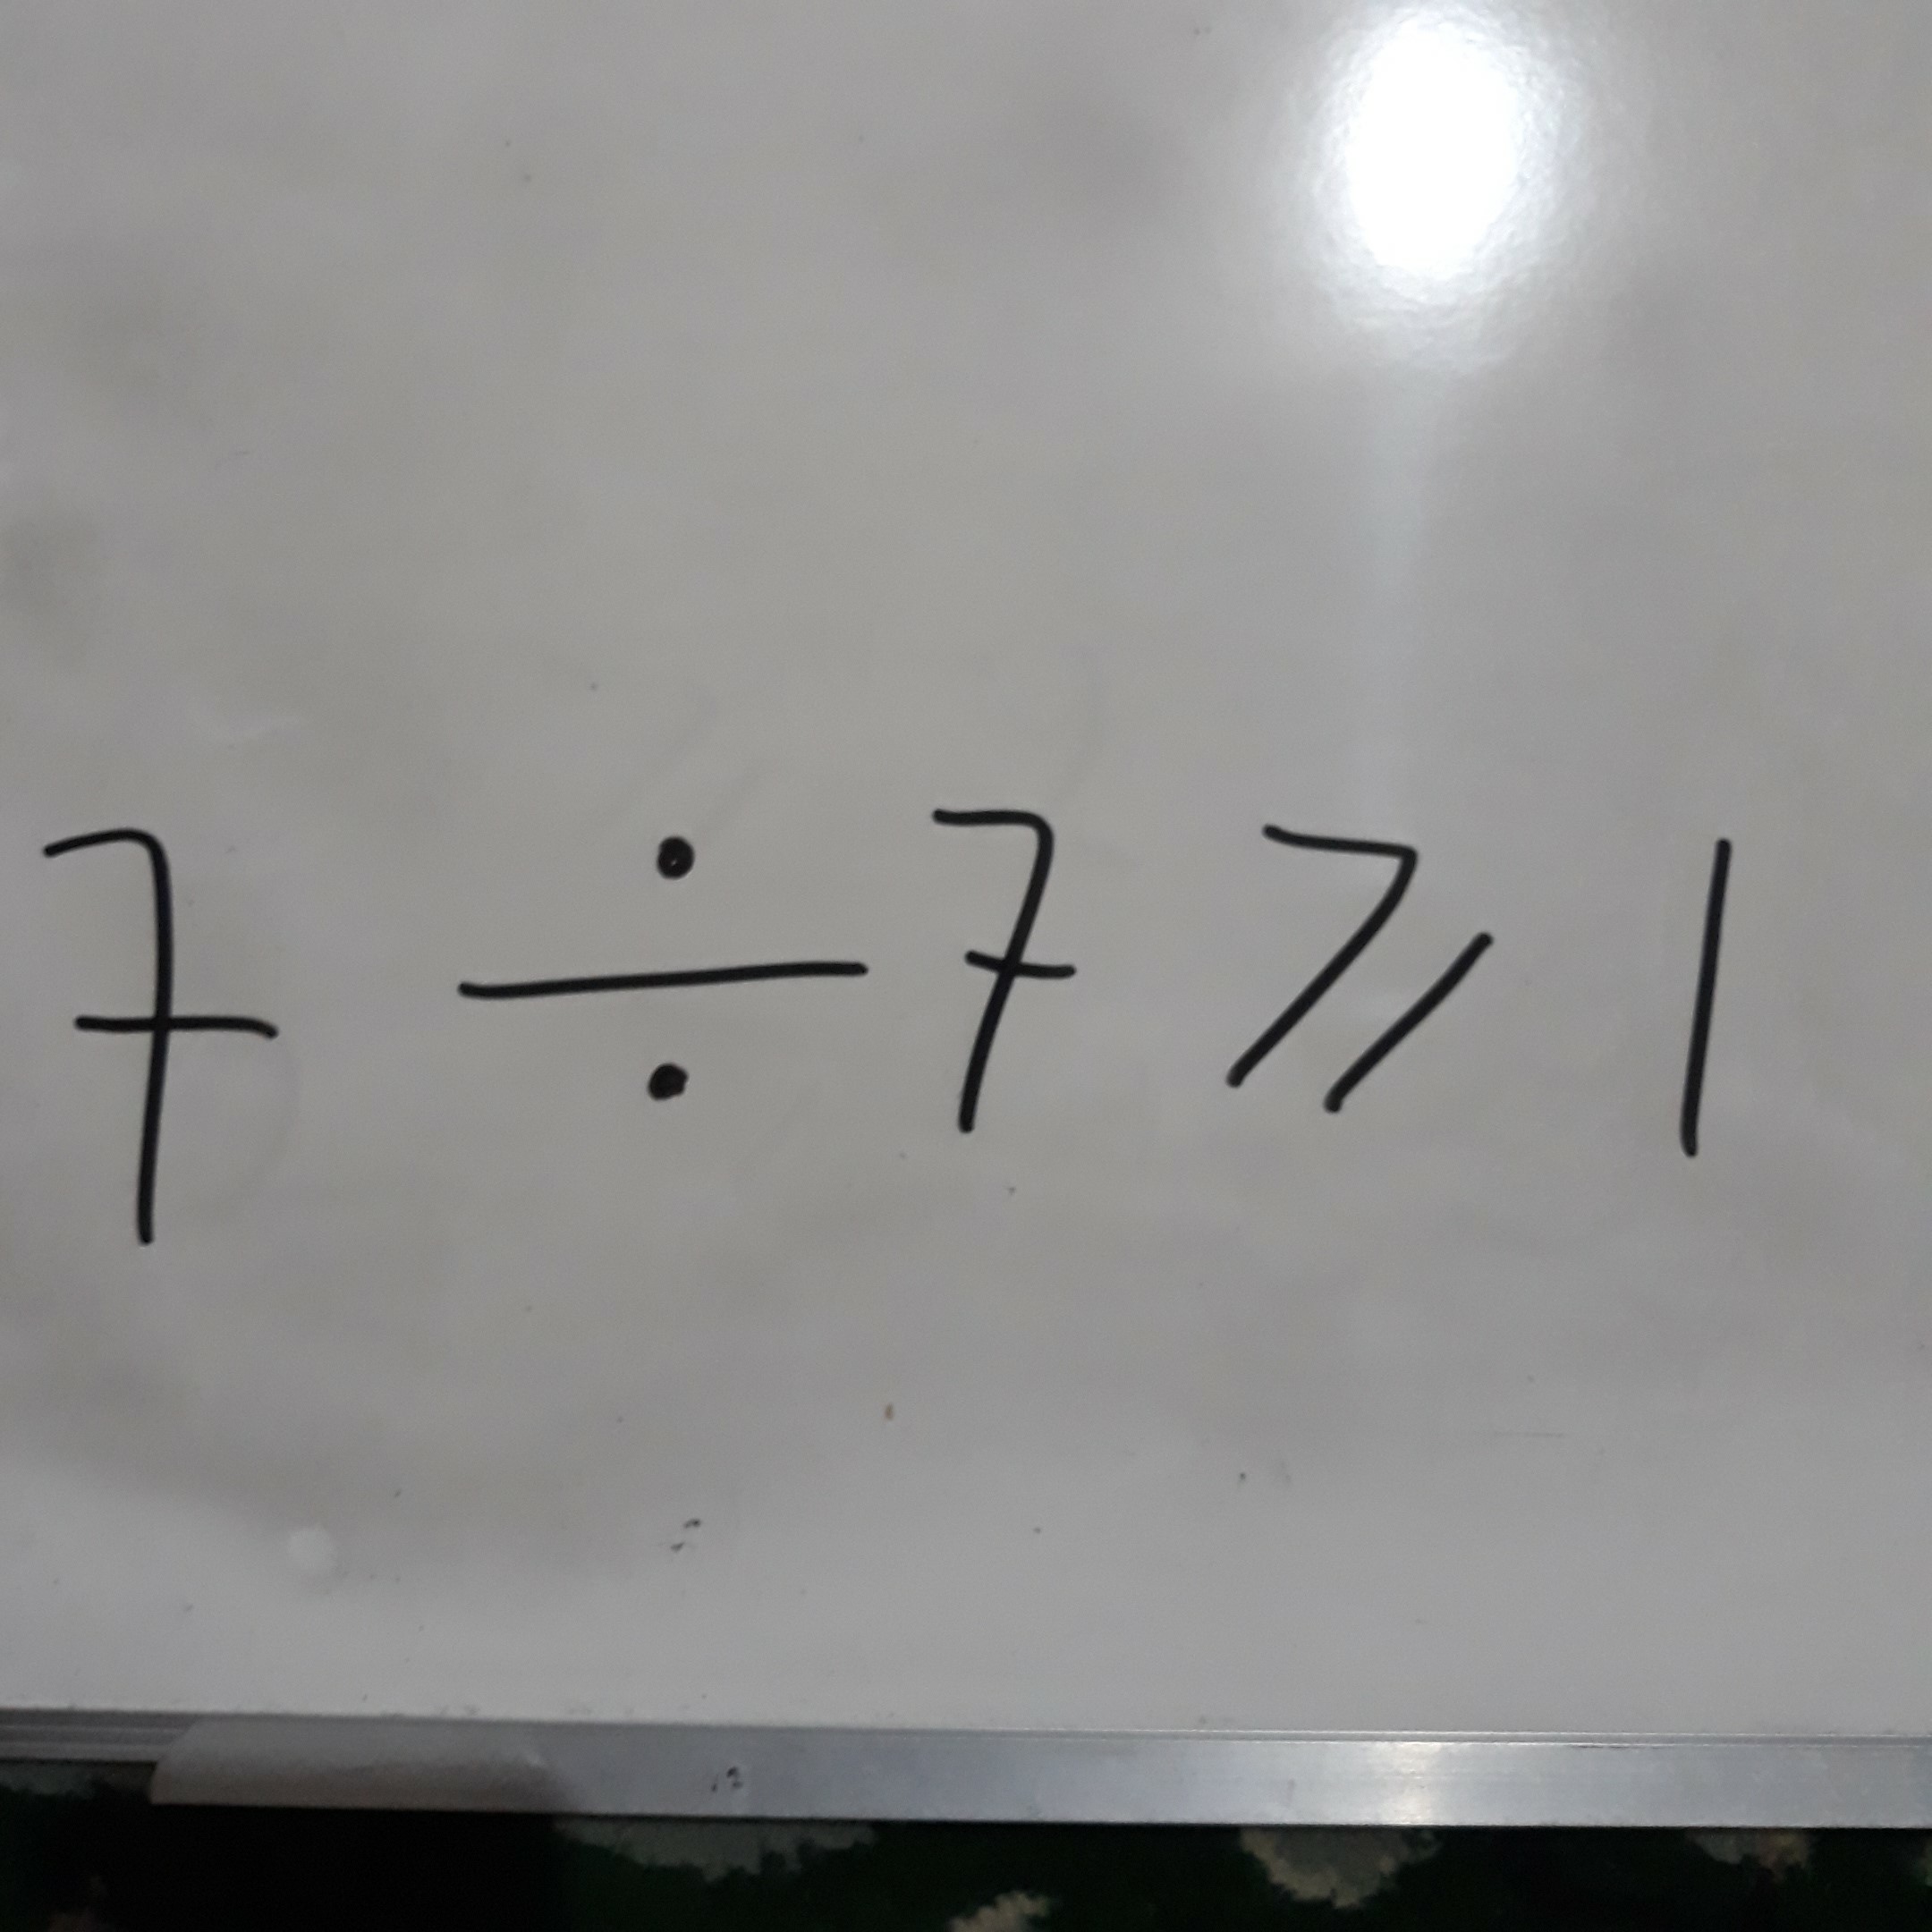 7 ÷ 7 ⩾ 1